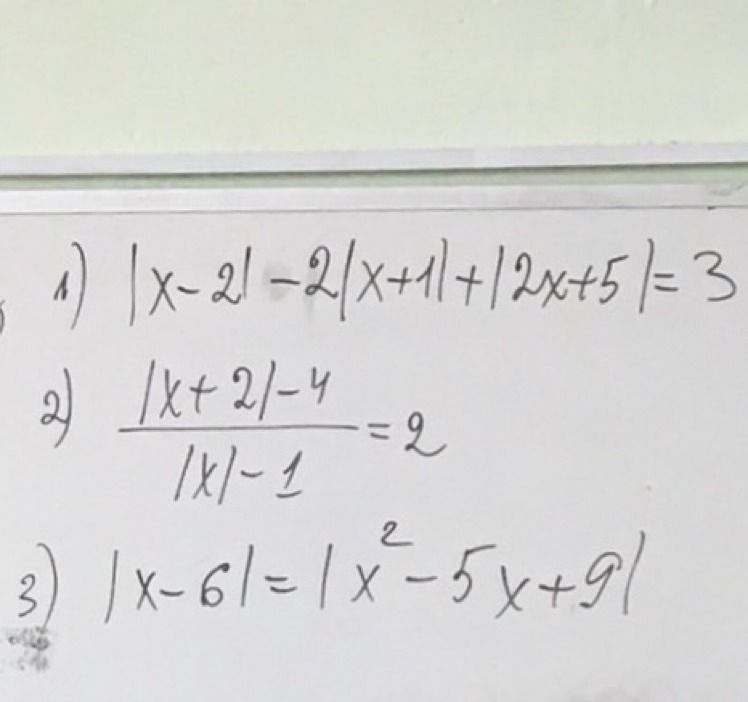 1) |x-2|-2|x+1|+|2x+5|=3
2) (|x+2|-4)/(|x|-1)=2
3) |x-6|=|x²-5x+9|